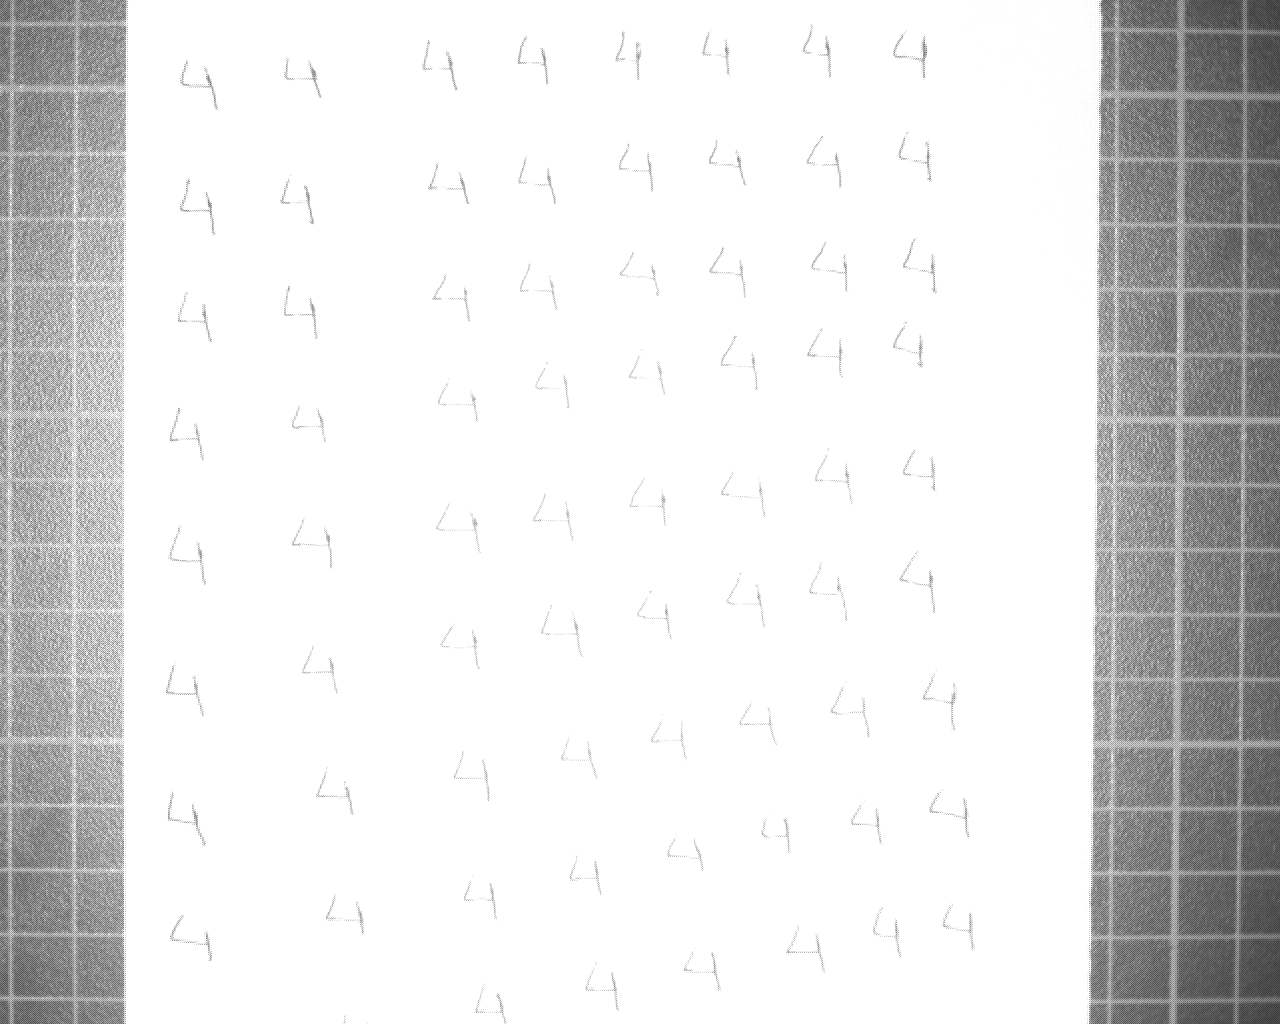 4 4 4 4 4 4 4 4
4 4 4 4 4 4 4 4
4 4 4 4 4 4 4 4
4 4 4 4 4 4 4 4
4 4 4 4 4 4 4 4
4 4 4 4 4 4 4 4
4 4 4 4 4 4 4 4
4 4 4 4 4 4 4 4
4 4 4 4 4 4